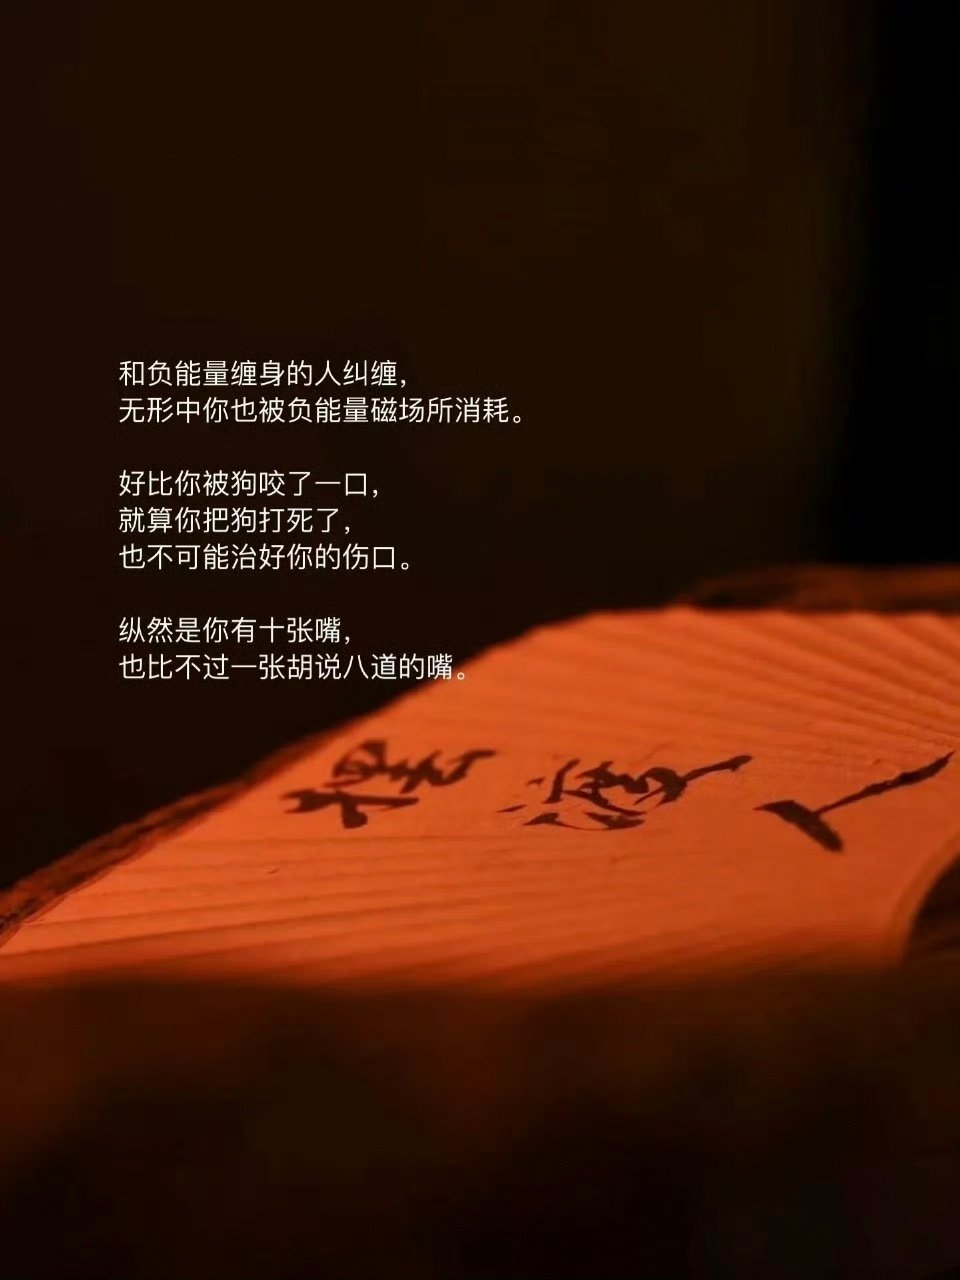 和负能量缠身的人纠缠，
无形中你也被负能量磁场所消耗。
好比你被狗咬了一口，
就算你把狗打死了，
也不可能治好你的伤口。
纵然是你有十张嘴，
也比不过一张胡说八道的嘴。